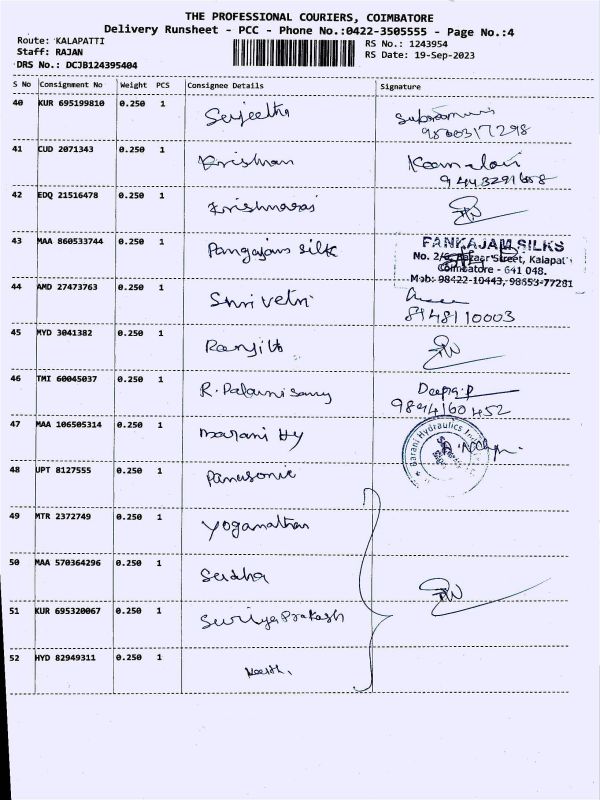 THE PROFESSIONAL COURIERS, COIMBATORE
Delivery Runsheet - PCC - Phone No.:0422-3505555 - Page No.:4
Route: KALAPATTI
RS No.: 1243954
Staff: RAJAN
RS Date: 19-Sep-2023
DRS No.: DCJB124395404
S No Consignment No Weight PCS Consignee Details Signature
40 KUR 695199810 0.250 1
9800317298
41 CUD 2071343 0.250 1 Krishnan
9443291658
42 EDQ 21516478 0.250 1 Krishnaraj
43 MAA 860533744 0.250 1 Pangajam silk
PANKAJAM SILKS
Bazaar Street, Kalapatti
Coimbatore - 641 048.
Mob: 98422-10443, 98653-77281
44 AMD 27473763 0.250 1 Shri vetri
8148110003
45 MYD 3041382 0.250 1 Ranjith
46 TMI 60045037 0.250 1 R. Palanisamy Deepa.P
9894160452
47 MAA 106505314 0.250 1 Barani Hy
Barani Hydraulics
48 UPT 8127555 0.250 1 Panasonic
49 MTR 2372749 0.250 1 Yoganathan
50 MAA 570364296 0.250 1 Sudha
51 KUR 695320067 0.250 1 Suriyaprakash
52 HYD 82949311 0.250 1